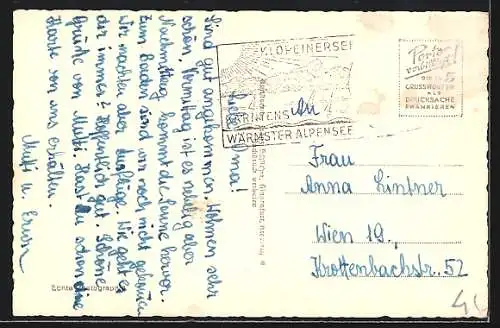 Liebe Oma!
Sind gut angekommen. Wohnen sehr
schön. Vormittag ist es neblig aber
Nachmittag kommt die Sonne hervor.
Zum Baden sind wir noch nicht gekommen
Wir machten aber Ausflüge. Wie geht es
dir immer? Hoffentlich gut. Schöne
Grüße von Mutti. Hast du schon eine
Karte von uns erhalten.
Muti u. Erich
Echte Photographie
KLOPEINERSEE
KÄRNTENS
WÄRMSTER ALPENSEE
Porto
verbilligt!
5
GRUSSWORTEN
ALS
DRUCKSACHE
FRANKIEREN
An
Frau
Anna Lintner
Wien 19.
Krottenbachstr. 52